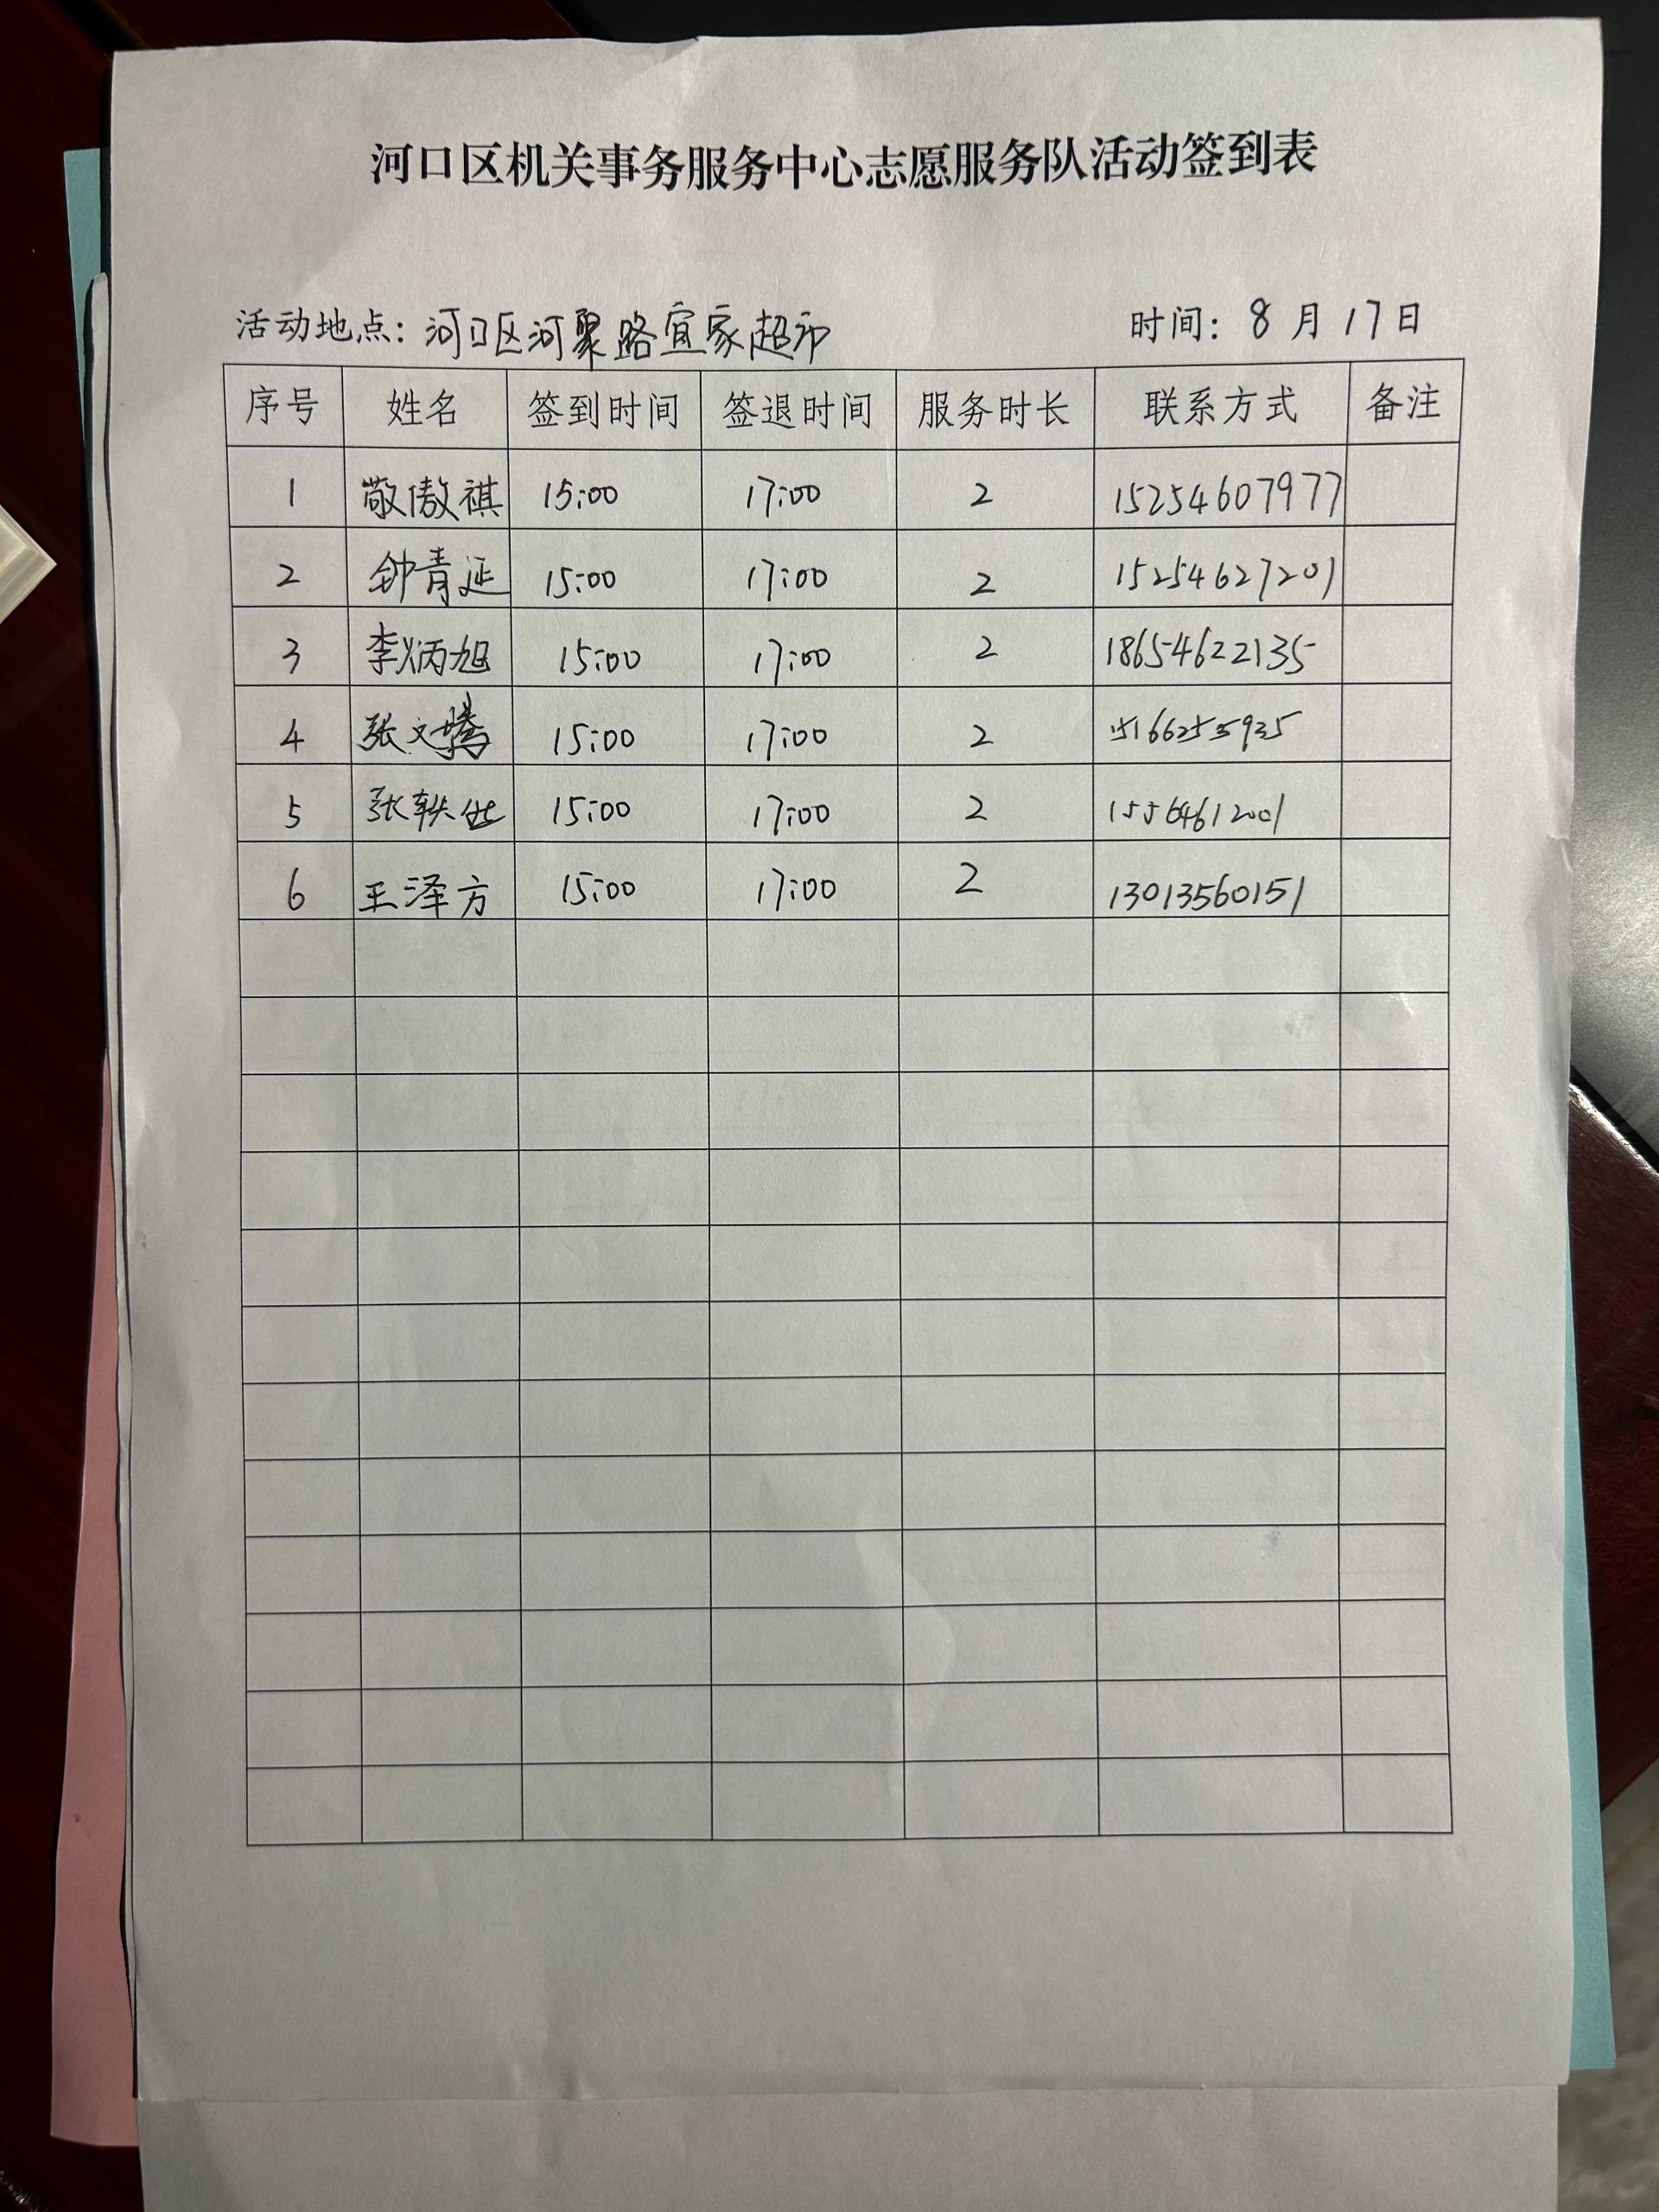 河口区机关事务服务中心志愿服务队活动签到表
活动地点：河口区河聚路宜家超市 时间：8月17日
序号 姓名 签到时间 签退时间 服务时长 联系方式 备注
1 敬傲祺 15:00 17:00 2 15254607977
2 钟青延 15:00 17:00 2 15254627201
3 李炳旭 15:00 17:00 2 18654622135
4 张文腾 15:00 17:00 2 15166255935
5 张轶 15:00 17:00 2 15564612001
6 王泽方 15:00 17:00 2 13013560151